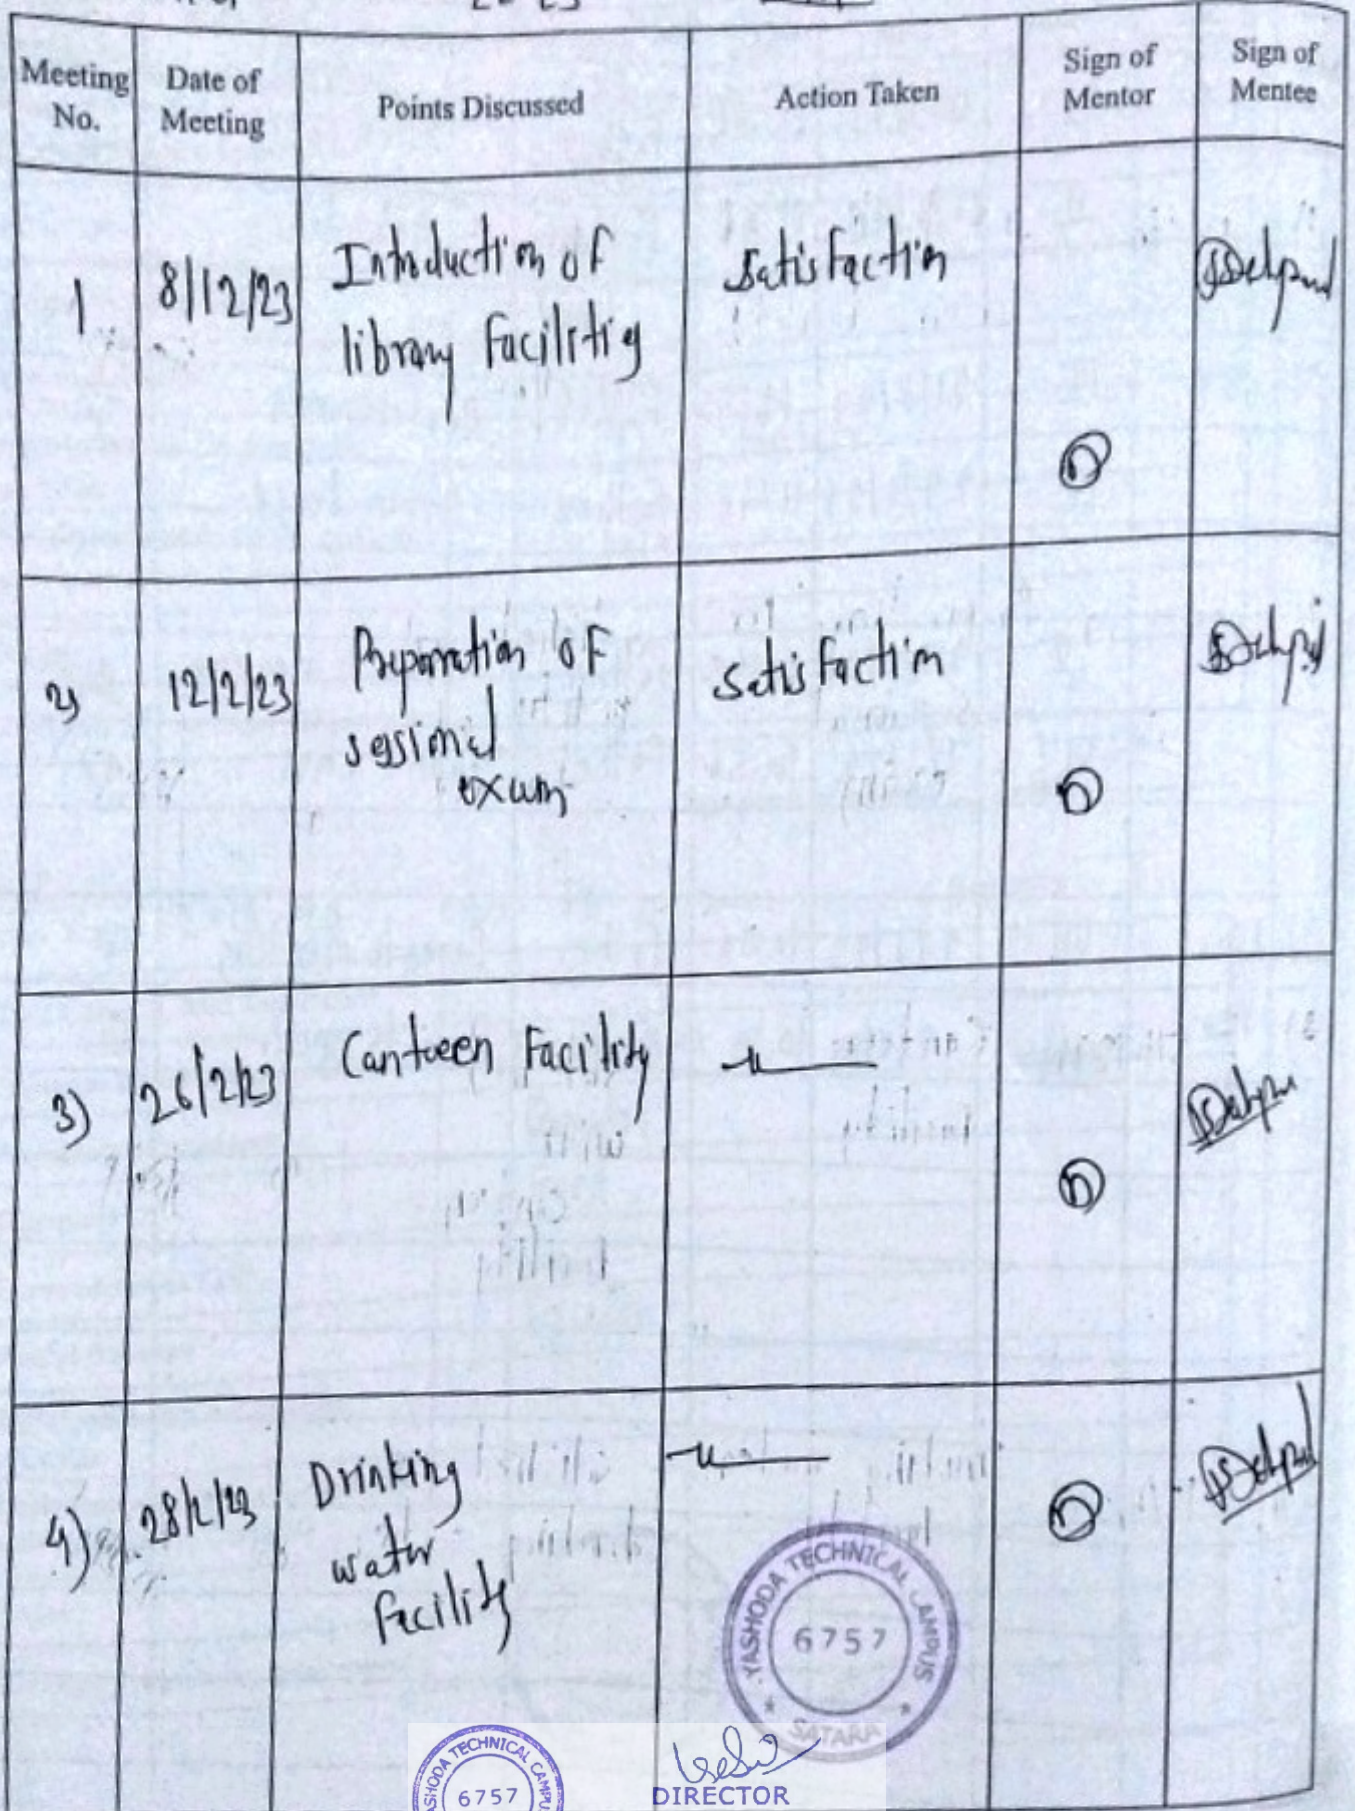 Meeting No.
Date of Meeting
Points Discussed
Action Taken
Sign of Mentor
Sign of Mentee
1
8/12/23
Introduction of
library facilities
satisfaction
2)
12/2/23
Preparation of
sessional
exam
satisfaction
3)
26/2/23
Canteen Facility
—"—
4)
28/2/23
Drinking
water
facility
—"—
YASHODA TECHNICAL CAMPUS
6757
SATARA
YASHODA TECHNICAL CAMPUS
6757
DIRECTOR